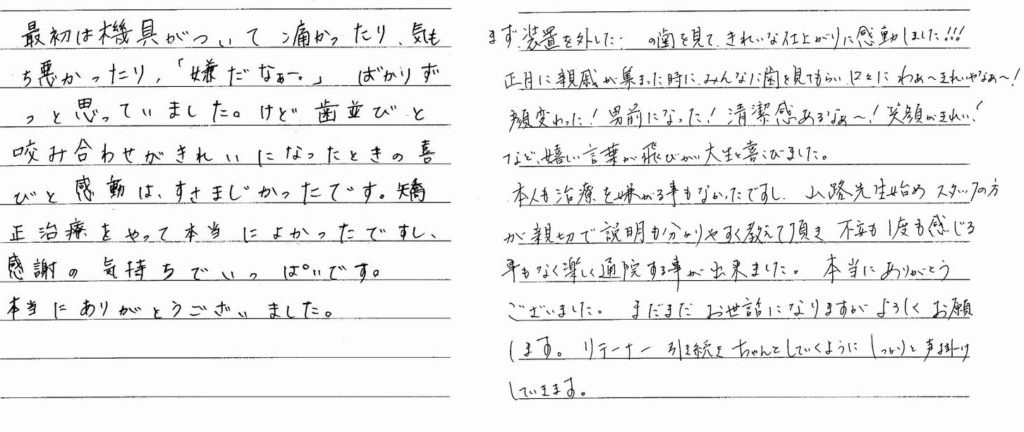 最初は機具がついて痛かったり、気も
ち悪かったり、「嫌だなぁー。」ばかりず
っと思っていました。けど歯並びと
咬み合わせがきれいになったときの喜
びと感動は、すさまじかったです。矯
正治療をやって本当によかったですし、
感謝の気持ちでいっぱいです。
本当にありがとうございました。
まず、装置を外した の歯を見て、きれいな仕上がりに感動しました!!!
正月に親戚が集まった時に、みんなに歯を見てもらい口々に わぁ〜きれいやなぁ〜!
顔変わった!男前になった!清潔感あるなぁ〜!笑顔がきれい!
など、嬉しい言葉が飛びかい と喜びました。
本人も治療を嫌がる事もなかったですし、山路先生始め スタッフの方
が親切で説明も分かりやすく教えて頂き 不安も1度も感じる
事もなく楽しく通院する事が出来ました。本当にありがとう
ございました。まだまだ お世話になりますが よろしく お願
します。リテーナー引き続き ちゃんとしていくように しっかりと声掛け
していきます。